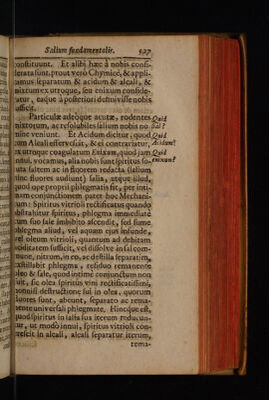 Salium fundamentalis. 597
constituunt. Et alibi hæc à nobis consi-
derata sunt, prout verò Chymicè, & appli-
camus separatum & acidum & alcali, &
mixtum ex utroque, seu enixum conside-
ratur, eaque à posteriori definivisse nobis
sufficit.
Particulæ adeoque acutæ, rodentes
mixtorum, ac resolubiles salium nobis no-
mine veniunt. Et Acidum dicitur, quod
cum Alcali effervescit, & ei contrariatur,
ex utroque coagulatum Enixum, quod jam
Quid
Sal?
Quid
Acidum?
Quid
enixum?
vocamus, alia nobis sunt spiritus so-
luta saltem ac in fluorem redacta (salium
hinc fluores audiunt) salia, atque illud,
quod ope proprii phlegmatis fit, per inti-
mam conjunctionem patet hoc Mechani-
cum: Spiritus vitrioli rectificatus quando
abstrahitur spiritus, phlegma immediatè
cum suo sale imbibito ascendit, sed sume
phlegma aliud, vel aquam ejus infunde,
vel oleum vitrioli, quantum ad debitam
aciditatem sufficit, vel dissolve in sal com-
mune, nitrum, in eo, ac destilla separatim,
exstillabit phlegma, residuo remanente
oleo & sale, quod intimè conjunctum non
fuit, sic olea spiritus vini rectificatissimi,
nonnisi destructione sui in olea, quorum
fluores sunt, abeunt, separato ac rema-
nente universali phlegmate. Hincque est,
quod spiritus in salia sua iterum reducun-
tur, ut modò innui, spiritus vitrioli con-
crescit in alcali, alcali separatur iterum,
rema-